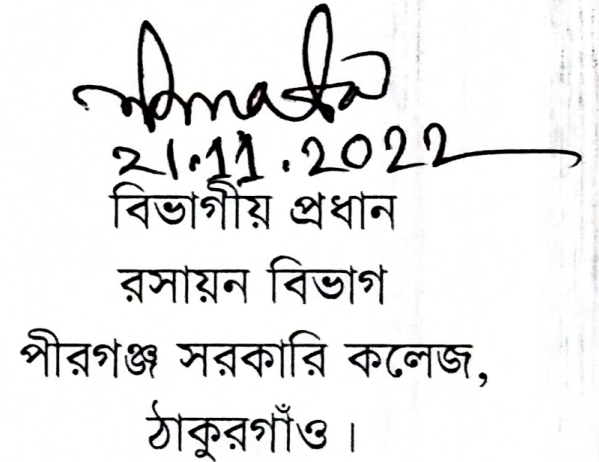 21.11.2022
বিভাগীয় প্রধান
রসায়ন বিভাগ
পীরগঞ্জ সরকারি কলেজ,
ঠাকুরগাঁও।